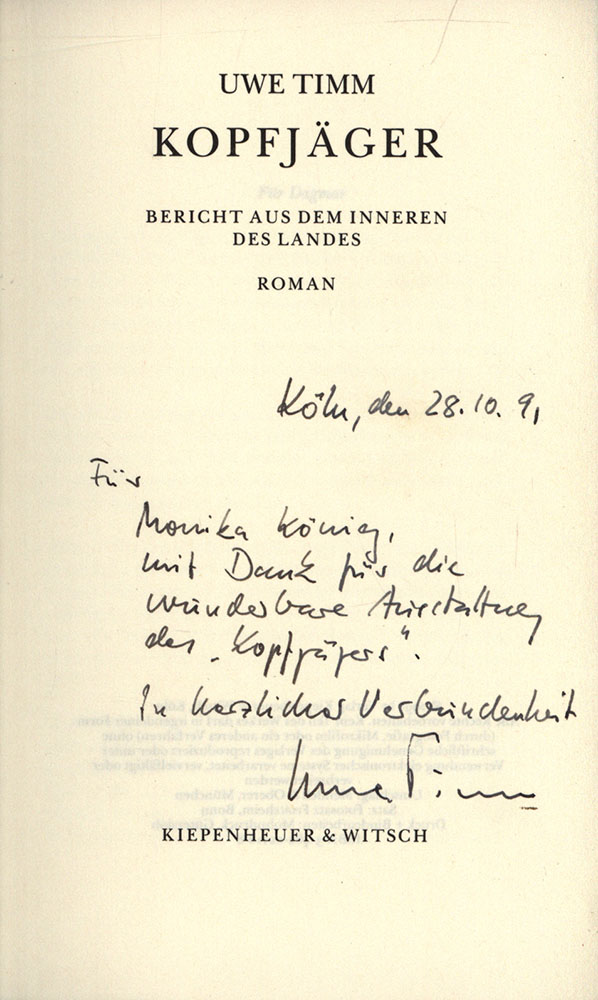 UWE TIMM
KOPFJÄGER
Für Dagmar
BERICHT AUS DEM INNEREN
DES LANDES
ROMAN
Köln, den 28. 10. 91
Für
Monika König,
mit Dank für die
wunderbare Ausstattung
des „Kopfjägers“.
In herzlicher Verbundenheit
Uwe Timm
KIEPENHEUER & WITSCH